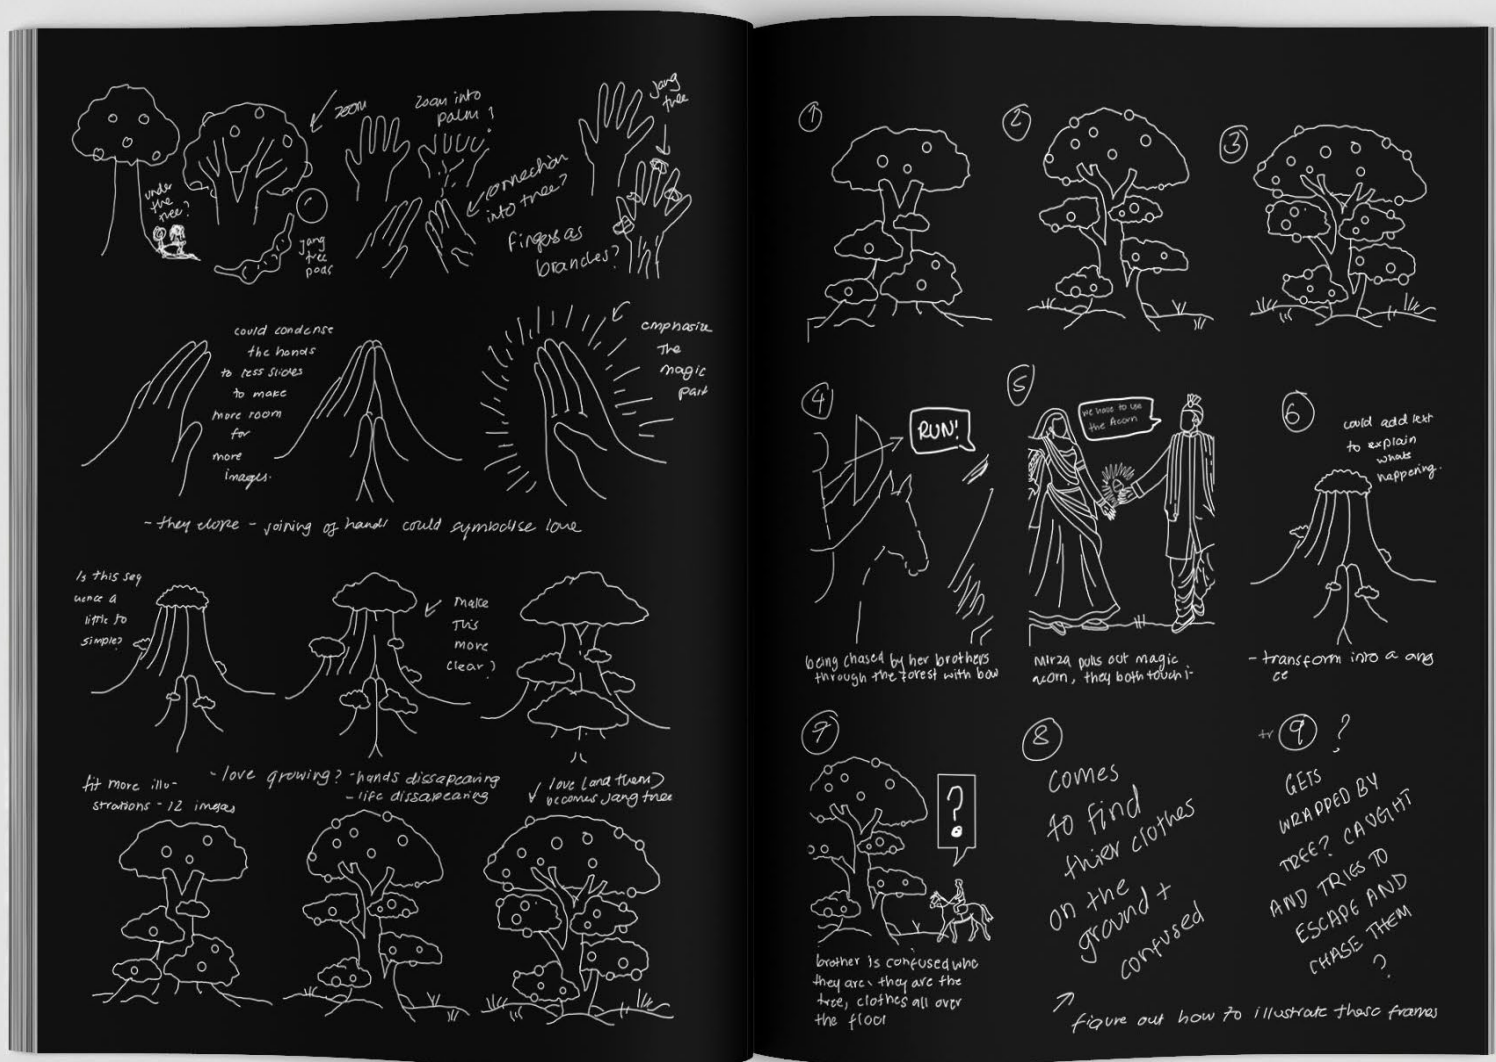 zoom
zoom into
palm?
jang
tree
under
the
tree?
connection
into tree?
jang
tree
pods
fingers as
branches?
could condense
the hands
to less slides
to make
more room
for
more
images.
emphasize
The
magic
part
- they elope - joining of hands could symbolise love
Is this seq
uence a
little to
simple?
make
This
more
clear?
fit more illu-
strations - 12 images
- love growing? - hands dissapearing
- life dissapearing
love (and them)
becomes jang tree
1
2
3
4
RUN!
being chased by her brothers
through the forest with bow
5
we have to use
the Acorn
Mirza pulls out magic
acorn, they both touch i-
6
could add text
to explain
whats
happening.
- transform into a
7
?
brother is confused who
they are, they are the
tree, clothes all over
the floor
8
comes
to find
thier clothes
on the
ground +
confused
9 ?
GETS
WRAPPED BY
TREE? CAUGHT
AND TRIES TO
ESCAPE AND
CHASE THEM
?
figure out how to illustrate these frames